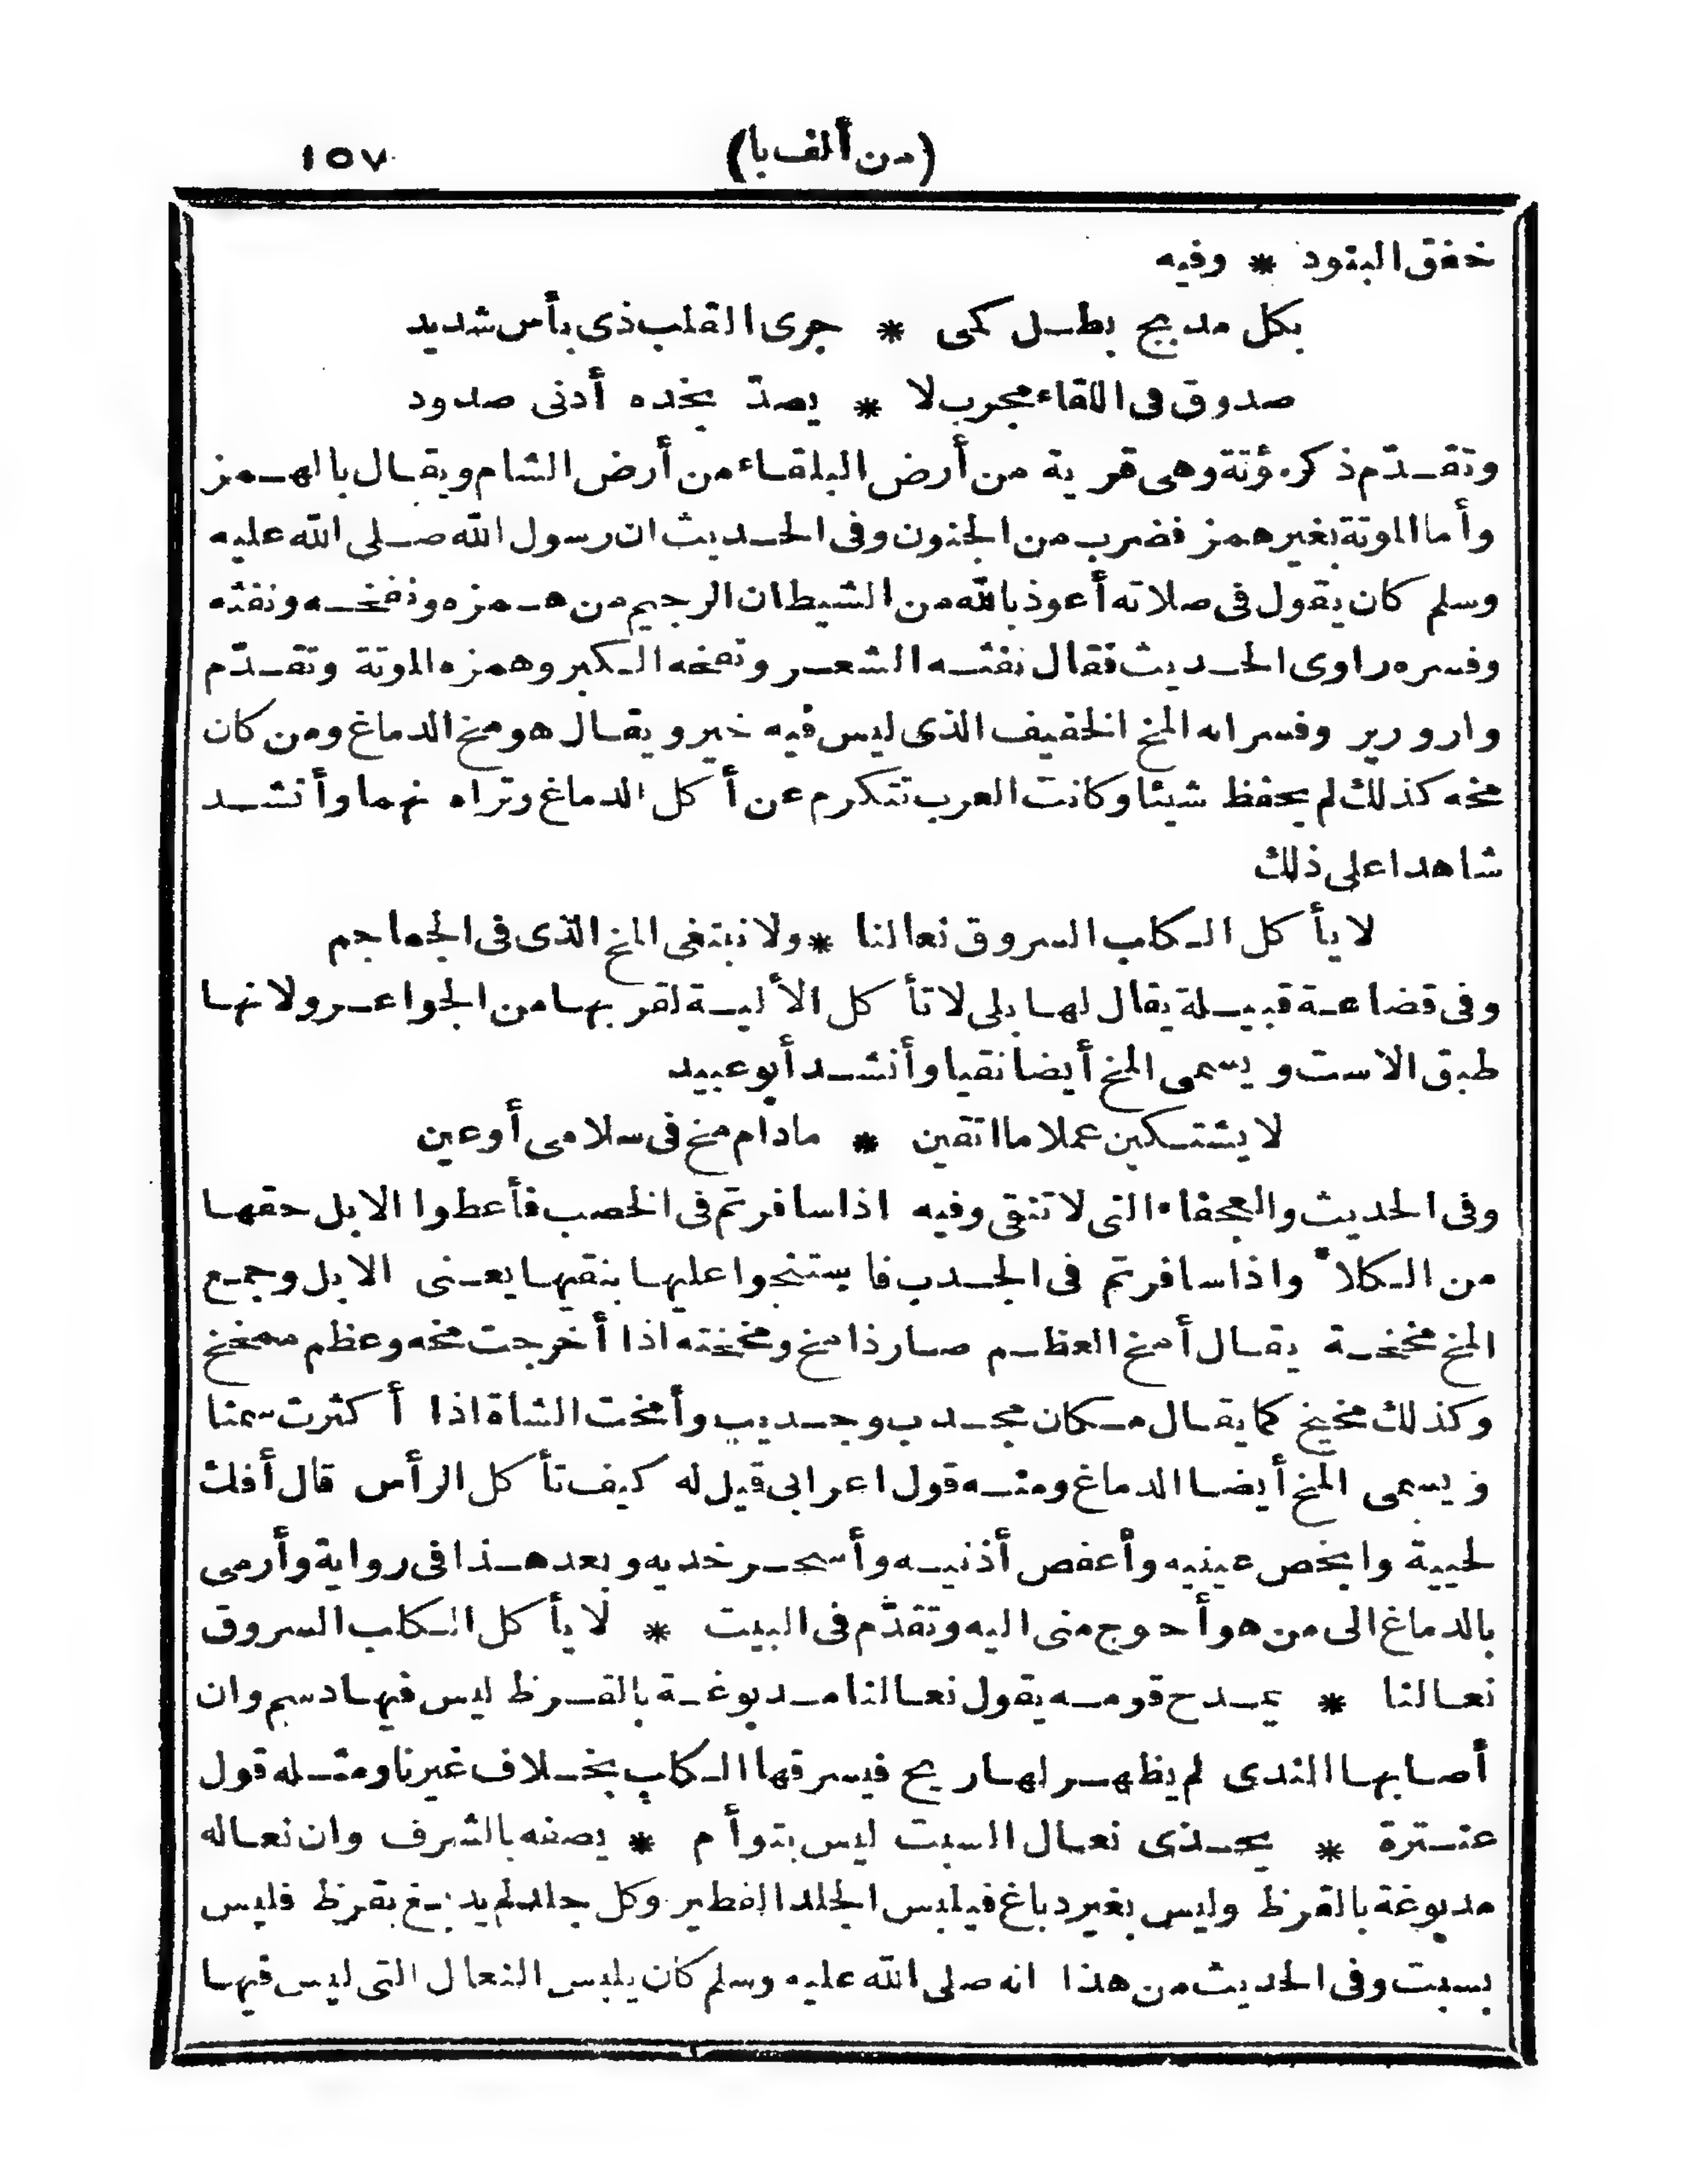 (من ألف با) ١٥٧
خفق البنود * وفيه
بكل مدجج بطل كمى * جرى القلب ذى بأس شديد
صدوق فى اللقاء مجرب لا * يصدّ بخده أدنى صدود
وتقدّم ذكر مؤتة وهى قرية من أرض البلقاء من أرض الشام ويقال بالهمز
وأما الموتة بغير همز فضرب من الجنون وفى الحديث ان رسول الله صلى الله عليه
وسلم كان يقول فى صلاته أعوذ بالله من الشيطان الرجيم من همزه ونفخه ونفثه
وفسره راوى الحديث فقال نفثه الشعر ونفخه الكبر وهمزه الموتة وتقدّم
وار ورير وفسر انه المخ الخفيف الذى ليس فيه خير ويقال هو مخ الدماغ ومن كان
مخه كذلك لم يحفظ شيئا وكانت العرب تتكرم عن أكل الدماغ وتراه نهما وأنشد
شاهدا على ذلك
لا يأكل الكلب السروق نعالنا * ولا نبتغى المخ الذى فى الجماجم
وفى قضاعة قبيلة يقال لها بلى لا تأكل الألية لقربها من الجواعر ولانها
طبق الاست ويسمى المخ أيضا نقيا وأنشد أبو عبيد
لا يشتكين عملا ما انقين * مادام مخ فى سلامى أو عين
وفى الحديث والعجفاء التى لا تنقى وفيه اذا سافرتم فى الخصب فأعطوا الابل حقها
من الكلأ واذا سافرتم فى الجدب فاستنجوا عليها بنقيها يعنى الابل وجمع
المخ مخخة يقال أمخ العظم صار ذا مخ ومخخته اذا أخرجت مخه وعظم ممخخ
وكذلك مخيخ كما يقال مكان مجدب وجديب وأمخت الشاة اذا أكثرت سمنا
ويسمى المخ أيضا الدماغ ومنه قول اعرابى قيل له كيف تأكل الرأس قال أفك
لحييه وابخص عينيه وأعفص أذنيه وأسحر خديه وبعد هذا فى رواية وأرمى
بالدماغ الى من هو أحوج منى اليه وتقدّم فى البيت * لا يأكل الكلب السروق
نعالنا * يمدح قومه يقول نعالنا مدبوغة بالقرظ ليس فيها دسم وان
أصابها الندى لم يظهر لها ريح فيسرقها الكلب بخلاف غيرنا ومثله قول
عنترة * يحذى نعال السبت ليس بتوأم * يصفه بالشرف وان نعاله
مدبوغة بالقرظ وليس بغير دباغ فيلبس الجلد الفطير وكل جلد لم يدبغ بقرظ فليس
بسبت وفى الحديث من هذا انه صلى الله عليه وسلم كان يلبس النعال التى ليس فيها